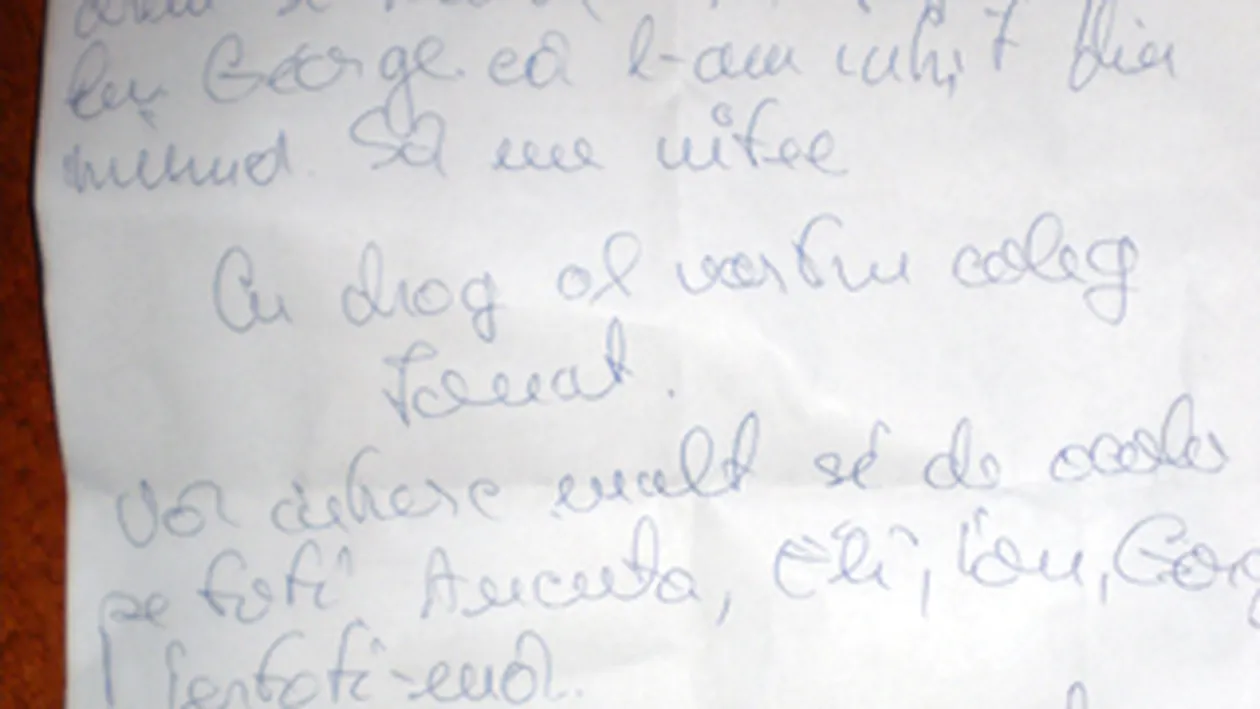 lui George că l-am iubit din
mumd. Să me uitee
Cu drag al vostru coleg
Ionuat.
Vă iubesc mult și de acolo
pe toți Ancuța, Eli, Ion, Geor
Iertați-mă.